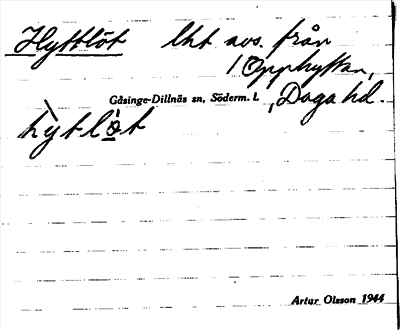 Hyttlöt lht avs. från
1 Opphyttan,
Gåsinge-Dillnäs sn, Söderm. l. , Daga hd.
hỳtlö̀t
Artur Olsson 1944